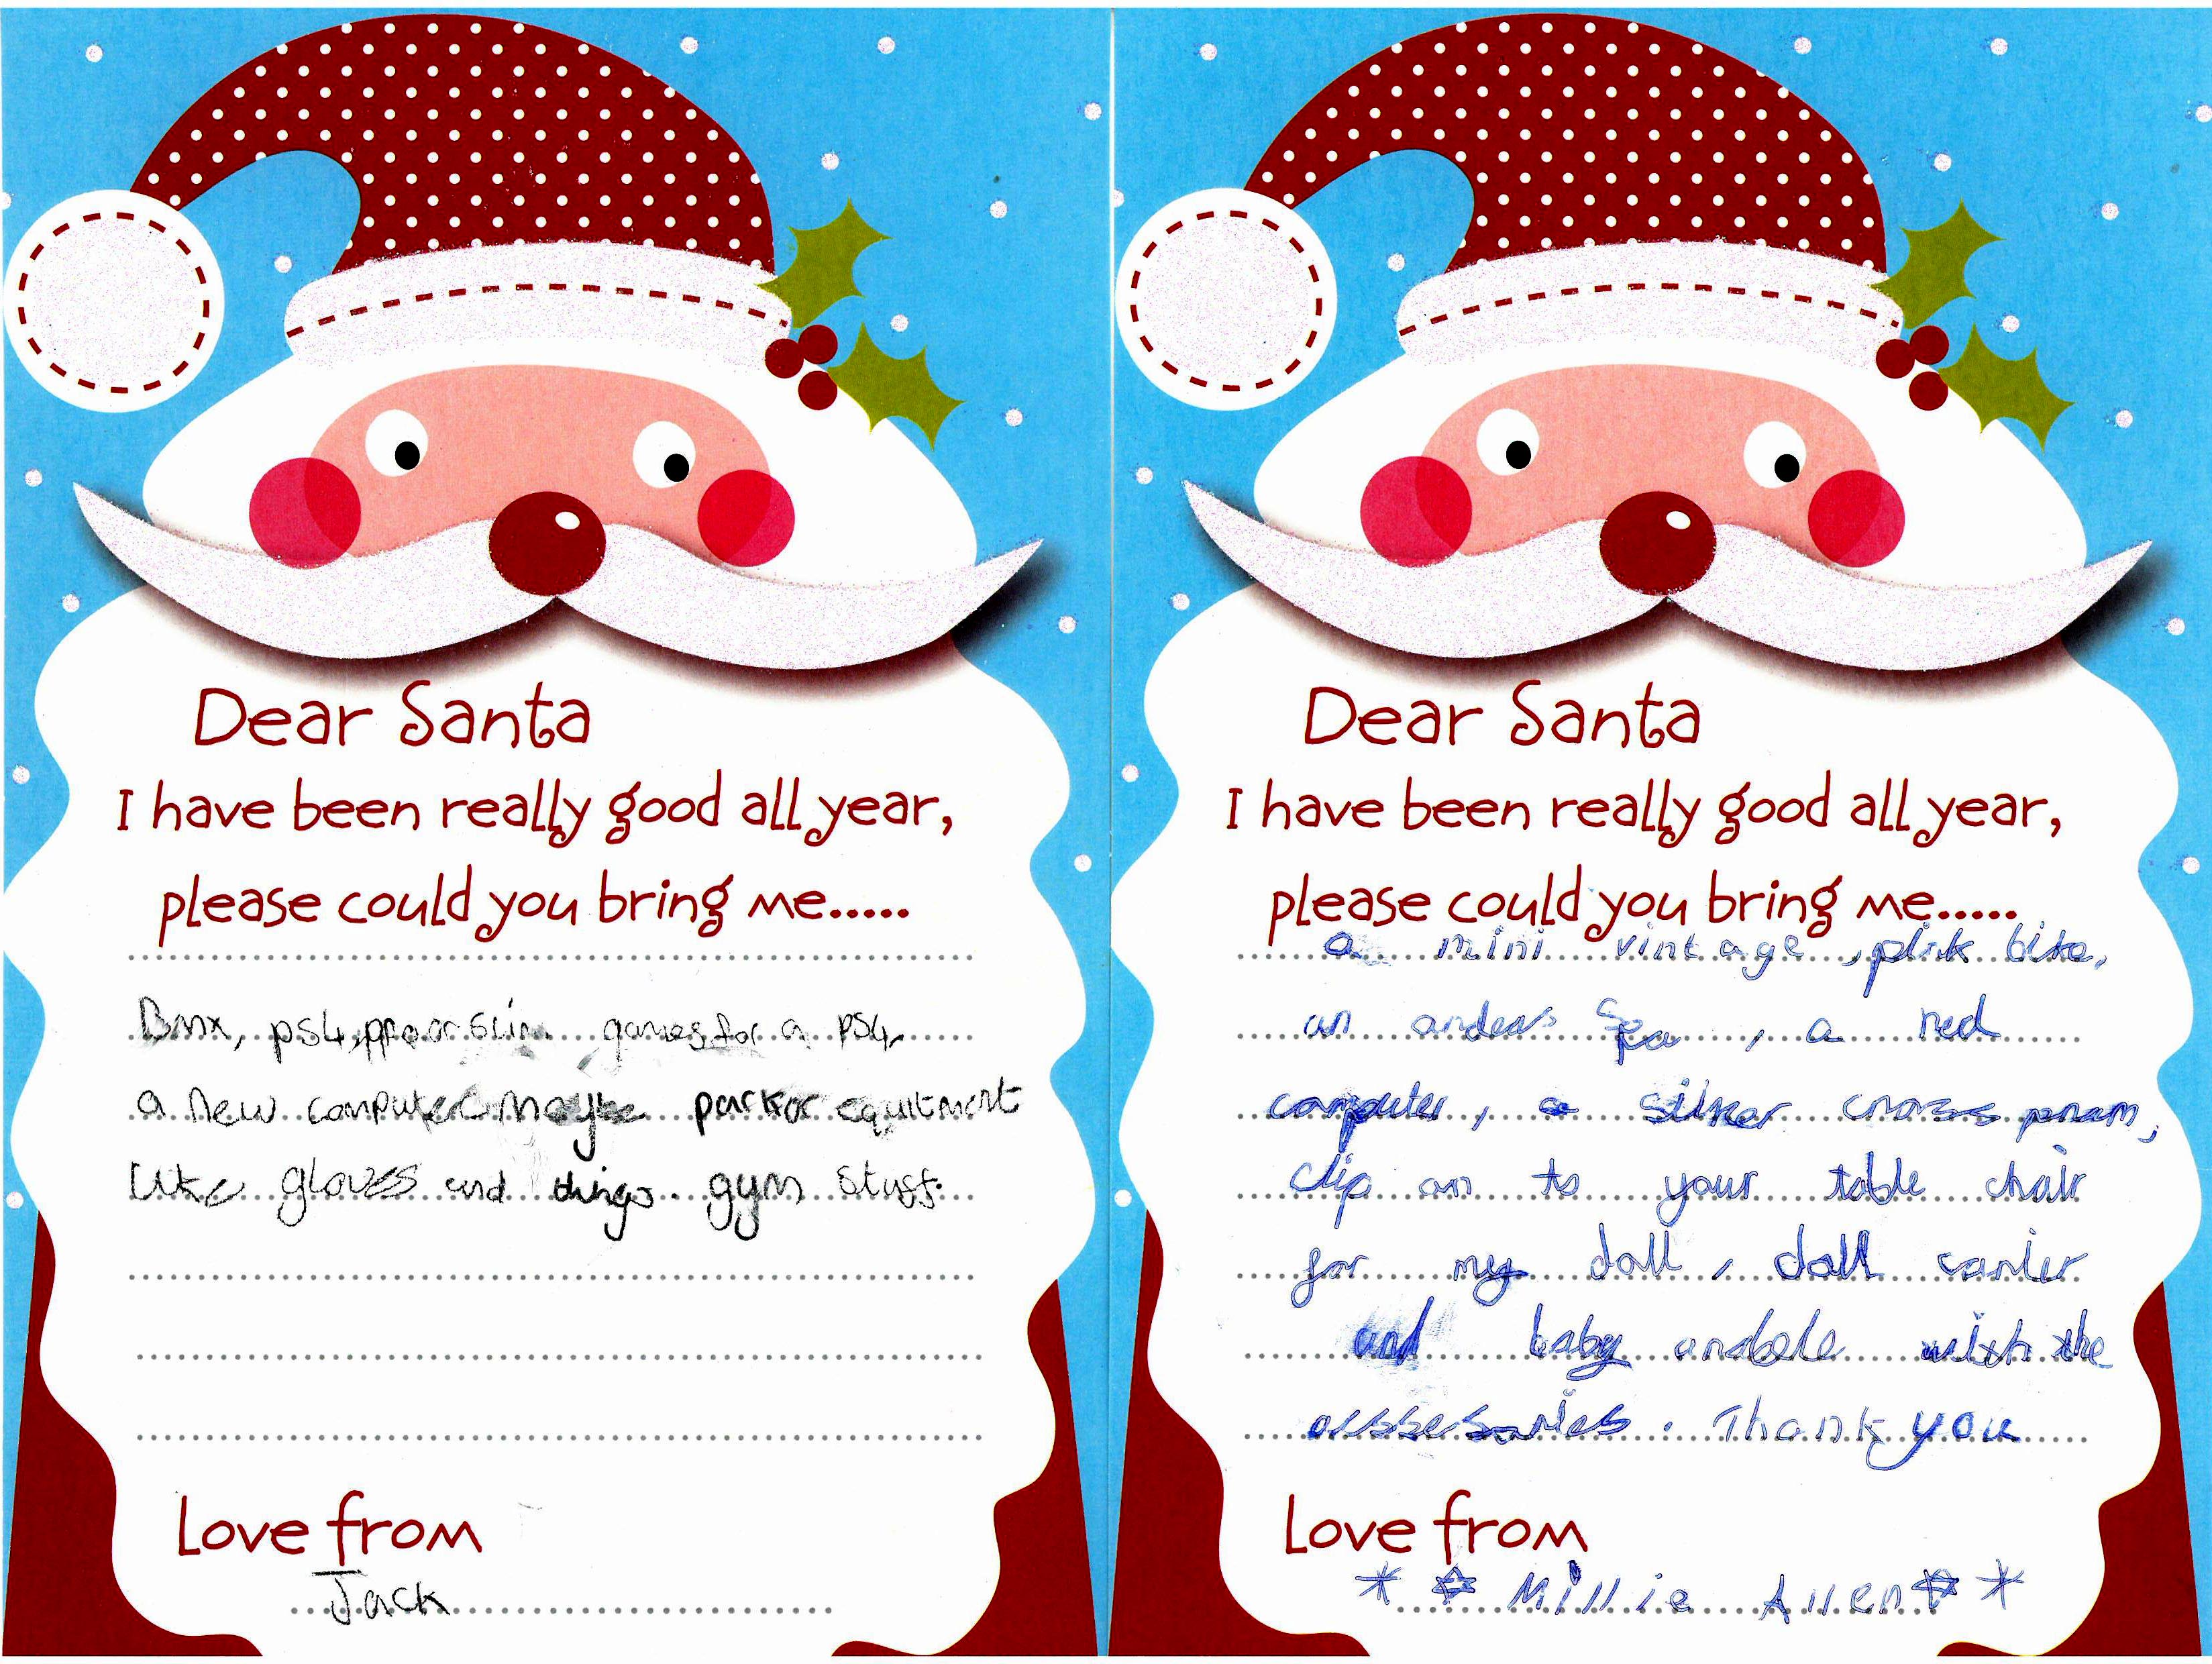 Dear Santa
I have been really good all year,
please could you bring me.....
Bmx, ps4, pro or slim games for a ps4,
a new computer maybe parkor equitment
like gloves and things. gym stuff.
Love from
Jack
Dear Santa
I have been really good all year,
please could you bring me.....
a mini vintage, pink bike,
an andeas Spa, a red
computer, a silker cross pram,
clip on to your table chair
for my doll, doll carier
and baby anabele with the
Thank you
Love from
Millie Allen